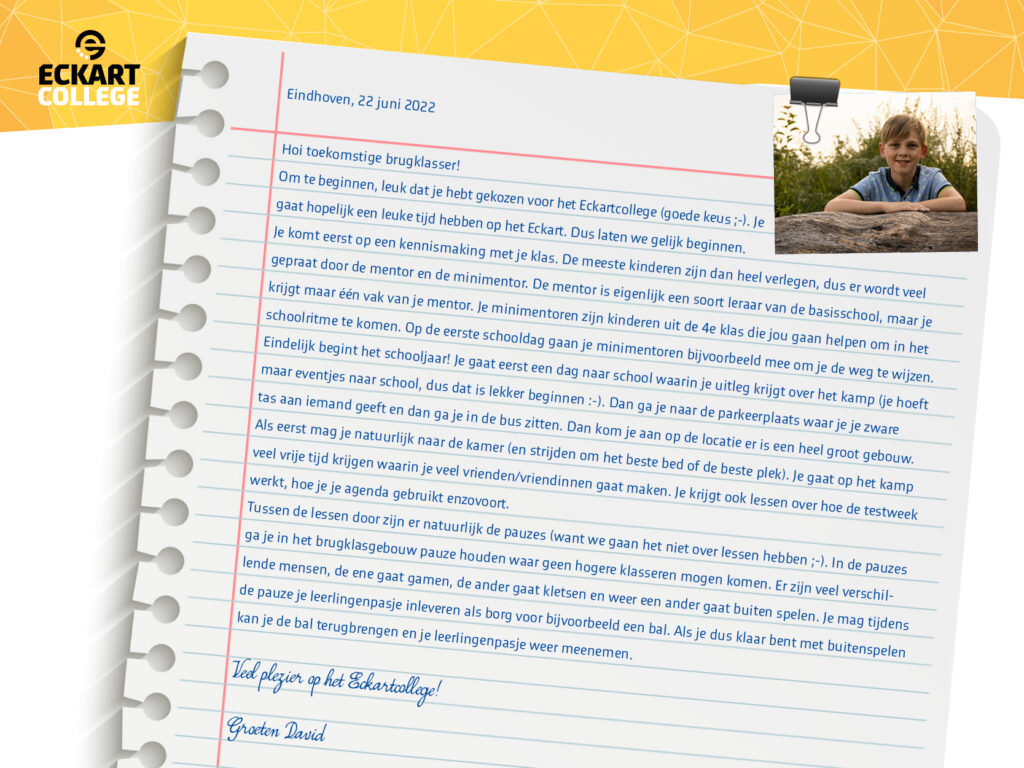 ECKART
COLLEGE
Eindhoven, 22 juni 2022
Hoi toekomstige brugklasser!
Om te beginnen, leuk dat je hebt gekozen voor het Eckartcollege (goede keus ;-). Je
gaat hopelijk een leuke tijd hebben op het Eckart. Dus laten we gelijk beginnen.
Je komt eerst op een kennismaking met je klas. De meeste kinderen zijn dan heel verlegen, dus er wordt veel
gepraat door de mentor en de minimentor. De mentor is eigenlijk een soort leraar van de basisschool, maar je
krijgt maar één vak van je mentor. Je minimentoren zijn kinderen uit de 4e klas die jou gaan helpen om in het
schoolritme te komen. Op de eerste schooldag gaan je minimentoren bijvoorbeeld mee om je de weg te wijzen.
Eindelijk begint het schooljaar! Je gaat eerst een dag naar school waarin je uitleg krijgt over het kamp (je hoeft
maar eventjes naar school, dus dat is lekker beginnen :-). Dan ga je naar de parkeerplaats waar je je zware
tas aan iemand geeft en dan ga je in de bus zitten. Dan kom je aan op de locatie er is een heel groot gebouw.
Als eerst mag je natuurlijk naar de kamer (en strijden om het beste bed of de beste plek). Je gaat op het kamp
veel vrije tijd krijgen waarin je veel vrienden/vriendinnen gaat maken. Je krijgt ook lessen over hoe de testweek
werkt, hoe je je agenda gebruikt enzovoort.
Tussen de lessen door zijn er natuurlijk de pauzes (want we gaan het niet over lessen hebben ;-). In de pauzes
ga je in het brugklasgebouw pauze houden waar geen hogere klasseren mogen komen. Er zijn veel verschil-
lende mensen, de ene gaat gamen, de ander gaat kletsen en weer een ander gaat buiten spelen. Je mag tijdens
de pauze je leerlingenpasje inleveren als borg voor bijvoorbeeld een bal. Als je dus klaar bent met buitenspelen
kan je de bal terugbrengen en je leerlingenpasje weer meenemen.
Veel plezier op het Eckartcollege!
Groeten David